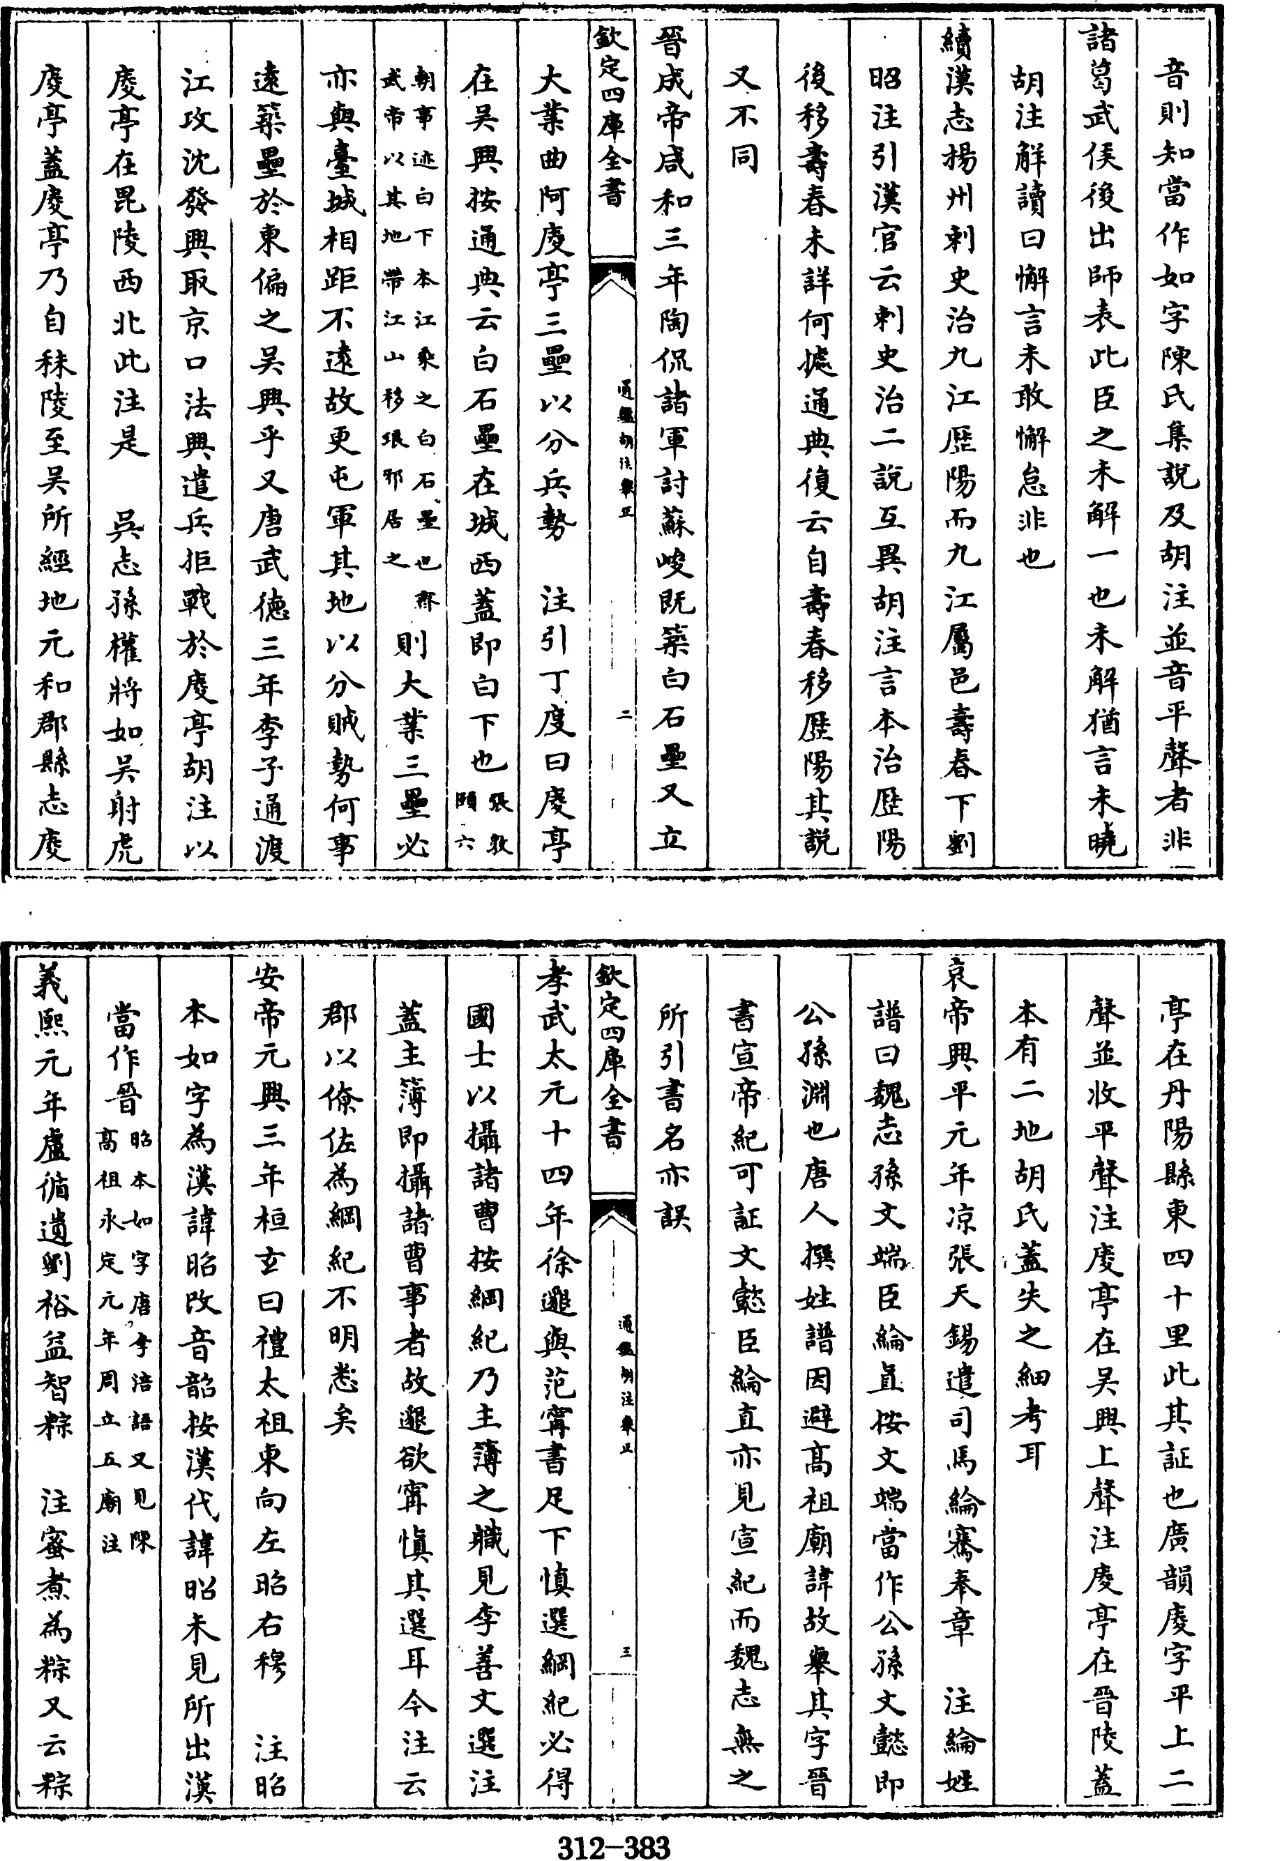 音則知當作如字陳氏集說及胡注並音平聲者非
諸葛武侯後出師表此臣之未解一也未解猶言未曉
胡注解讀曰懈言未敢懈怠非也
續漢志揚州刺史治九江歷陽而九江屬邑壽春下劉
昭注引漢官云刺史治二說互異胡注言本治歷陽
後移壽春未詳何據通典復云自壽春移歷陽其說
又不同
晉成帝咸和三年陶侃諸軍討蘇峻既築白石壘又立
欽定四庫全書
通鑑胡注舉正
二
大業曲阿庱亭三壘以分兵勢　注引丁度曰庱亭
在吴興按通典云白石壘在城西蓋即白下也張敦頤六
朝事迹白下本江乘之白石壘也齊武帝以其地帶江山移琅邪居之則大業三壘必
亦與臺城相距不遠故更屯軍其地以分賊勢何事
遠築壘於東偏之吴興乎又唐武德三年李子通渡
江攻沈發興取京口法興遣兵拒戰於庱亭胡注以
庱亭在毘陵西北此注是　吳志孫權將如吴射虎
庱亭蓋庱亭乃自秣陵至吴所經地元和郡縣志庱
亭在丹陽縣東四十里此其証也廣韻庱字平上二
聲並收平聲注庱亭在吴興上聲注庱亭在晉陵蓋
本有二地胡氏蓋失之細考耳
哀帝興平元年凉張天錫遣司馬綸騫奉章　注綸姓
譜曰魏志孫文端臣綸直按文端當作公孫文懿即
公孫淵也唐人撰姓譜因避高祖廟諱故舉其字晉
書宣帝紀可証文懿臣綸直亦見宣紀而魏志無之
所引書名亦誤
欽定四庫全書
通鑑胡注舉正
三
孝武太元十四年徐邈與范甯書足下慎選綱紀必得
國士以攝諸曹按綱紀乃主簿之職見李善文選注
蓋主簿即攝諸曹事者故邈欲甯慎其選耳今注云
郡以僚佐為綱紀不明悉矣
安帝元興三年桓玄曰禮太祖東向左昭右穆　注昭
本如字為漢諱昭改音韶按漢代諱昭未見所出漢
當作晉昭本如字唐李涪語又見陳高祖永定元年周立五廟注
義熙元年盧循遺劉裕益智粽　注蜜煮為粽又云粽
312-383